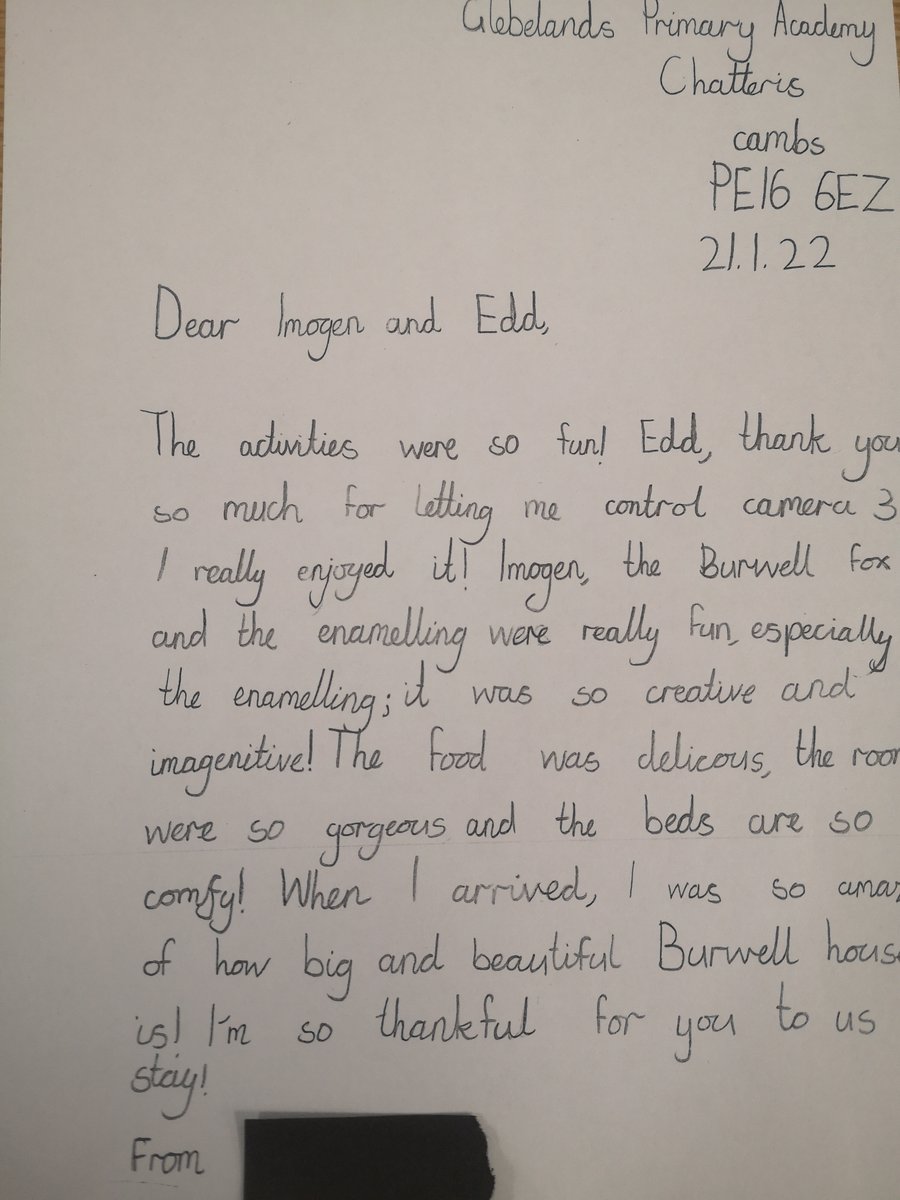 Glebelands Primary Academy
Chatteris
cambs
PE16 6EZ
21.1.22
Dear Imogen and Edd,
The activities were so fun! Edd, thank you
so much for letting me control camera 3
I really enjoyed it! Imogen, the Burwell fox
and the enamelling were really fun, especially
the enamelling; it was so creative and
imagenitive! The food was delicous, the room
were so gorgeous and the beds are so
comfy! When I arrived, I was so
of how big and beautiful Burwell house
is! I'm so thankful for you to us
stay!
From